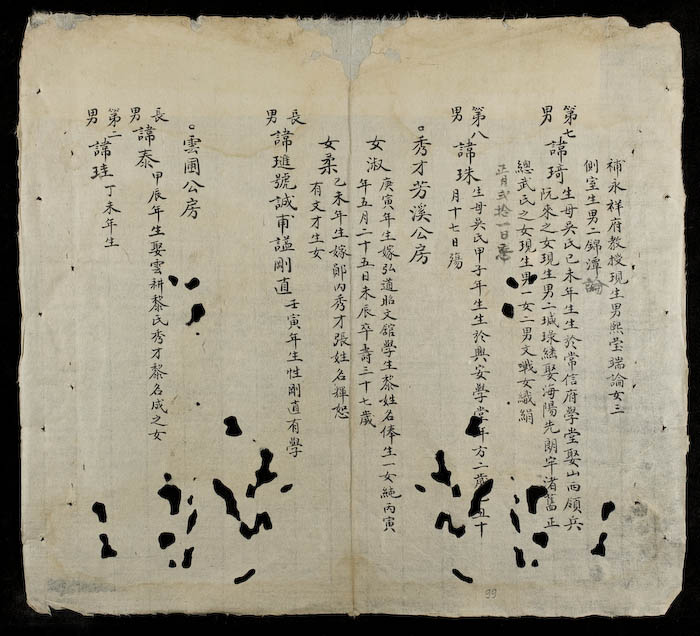 補永祥府教授現生男熙瑩瑞論女三
側室生男二錦潭論
第七男諱琦生母吳氏己未年生生於常信府學堂娶山西領兵
阮來之女現生男二城琭繼娶海陽先朗罕渚舊正
總武氏之女現生男一女二男文戰女織絹
正月弍拾一日忌
第八男諱珠生母吳氏甲子年生生於興安學堂年方二歲丑十
月十七日殤
秀才芳溪公房
女淑庚寅年生嫁弘道昭文館學生黎姓名俸生一女純丙寅
年五月二十五日未辰卒壽三十七歲
女柔己未年生嫁鄭內秀才張姓名輝恕
有文才生女
長男諱璡號誠甫謚剛直壬寅年生性剛直有學
雲圃公房
長男諱泰甲辰年生娶雲耕黎氏秀才黎名成之女
第二男諱珪丁未年生
99